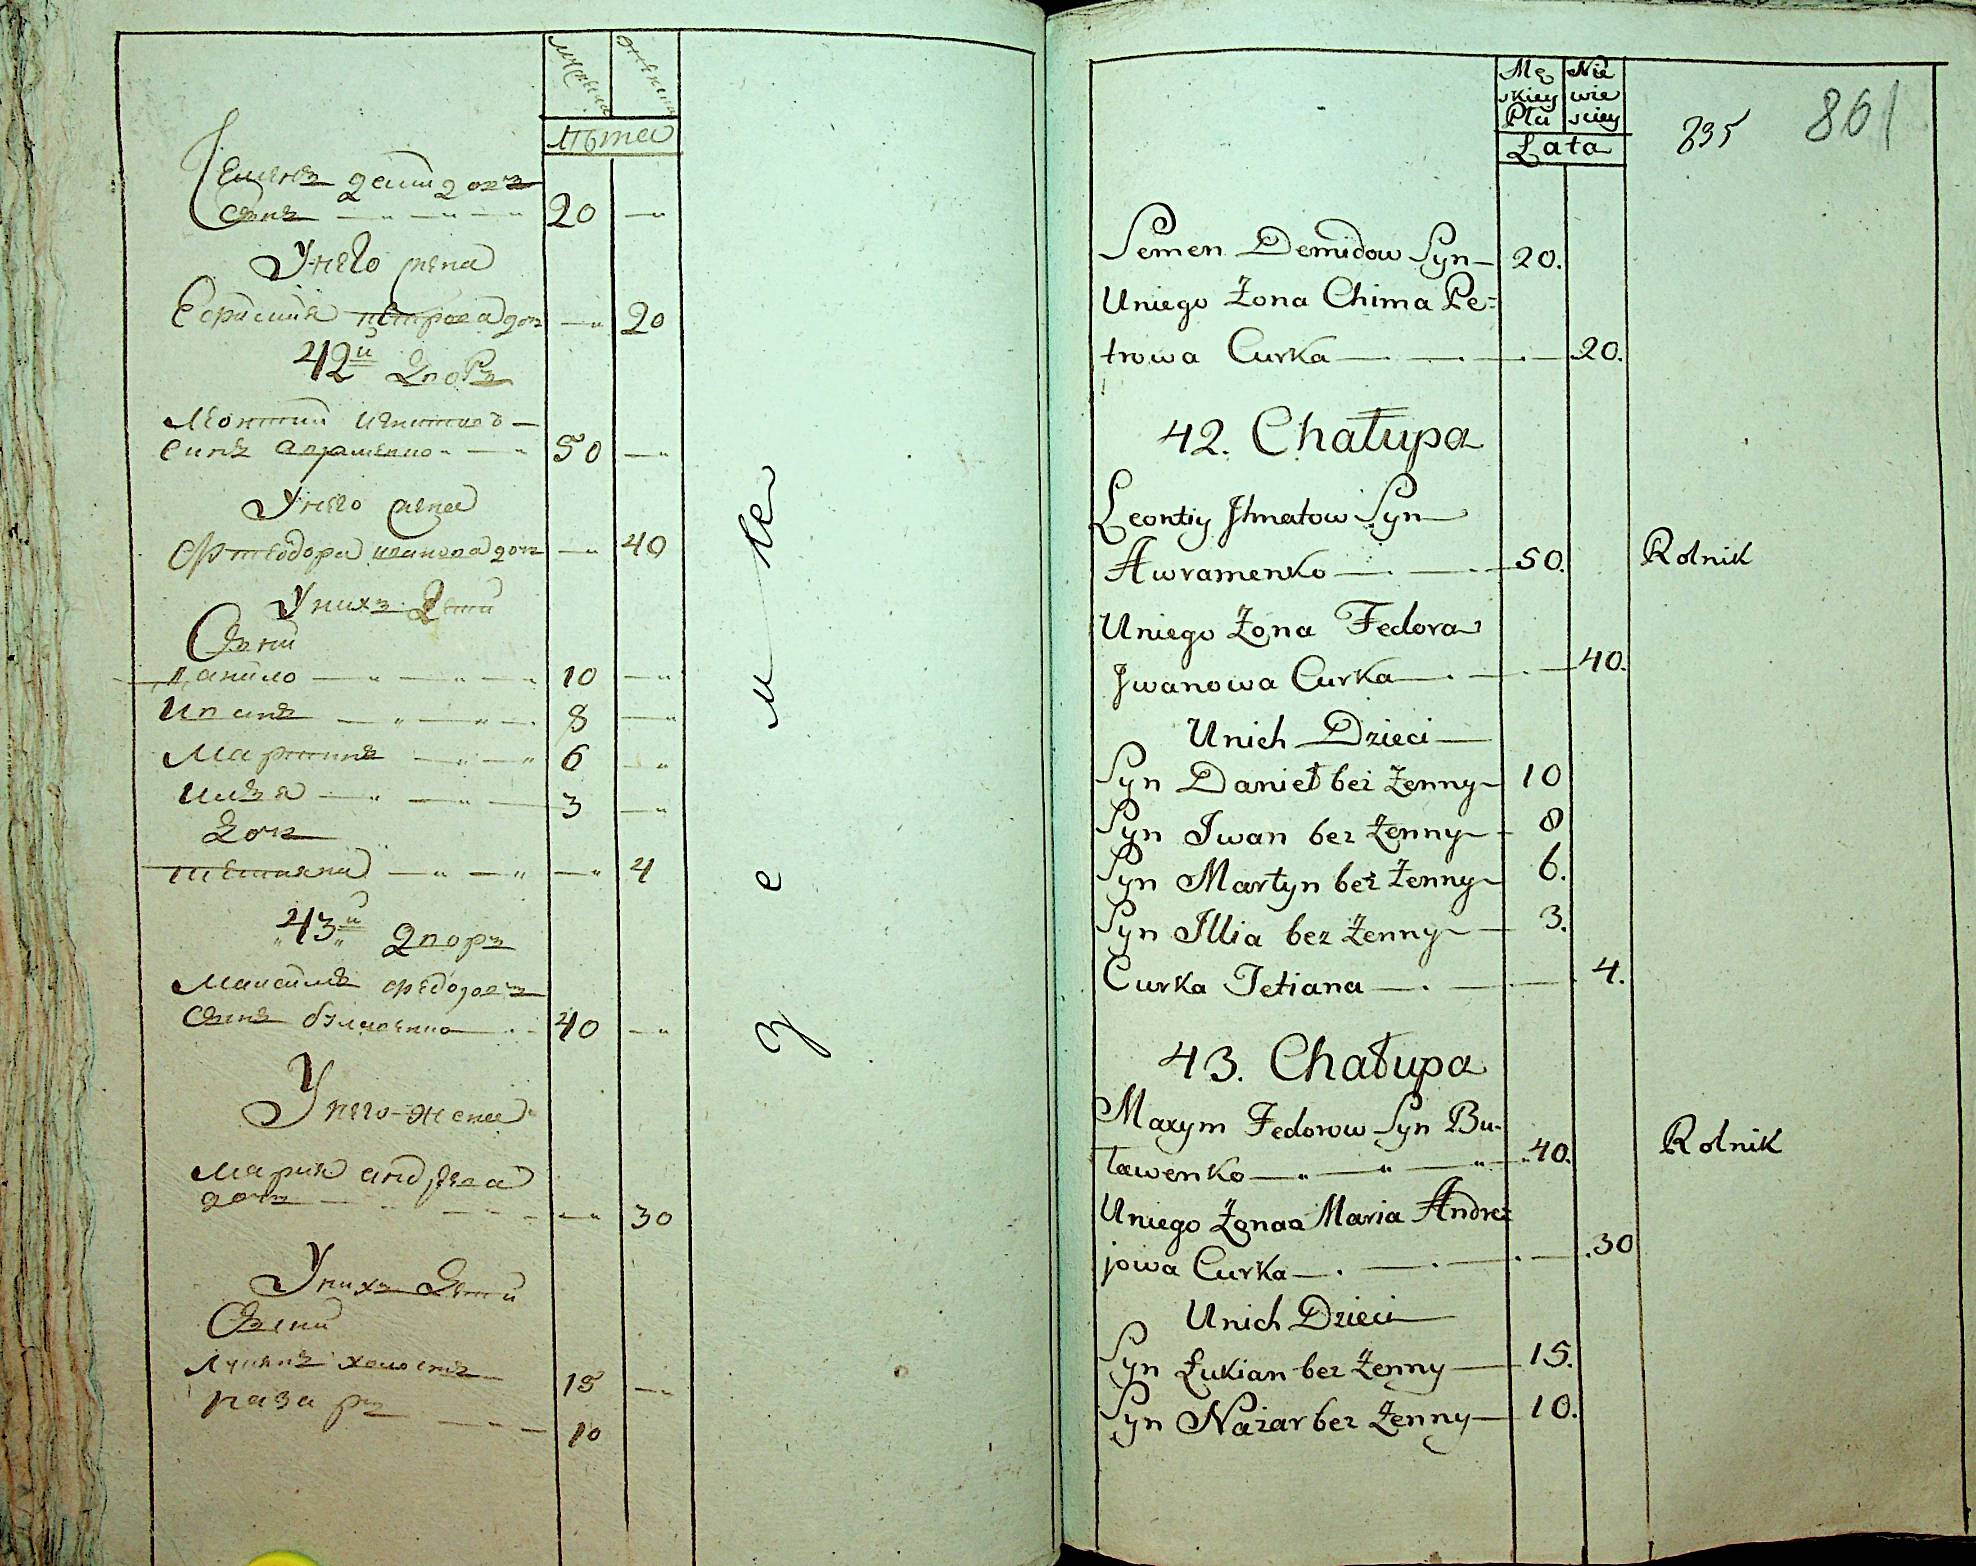 лѣта
сынъ 20
Унего жена
петрова доч 20
42й Дворъ
Леонтий игнатовъ
сынъ авраменко 50
Унего жена
Фтеодора иванова доч 40
Унихъ Дети
Сыни
данило 10
Иванъ 8
Мартинъ 6
илья 3
Доч
тетияна 4
43й Дворъ
Максимъ федоровъ
сынъ булавенко 40
Унего жена
мария андреева
дочь 30
Унихъ Дети
Сыни
лукянъ холостъ 15
назаръ 10
Mę Nie
skiey wie
Płci sciey
Lata
835 861
Semen Demidow Syn 20.
Uniego Żona Chima Pe=
trowa Curka 20.
42. Chałupa
Leontiy Jhnatow Syn
Awramenko 50. Rolnik
Uniego Żona Fedora
Jwanowa Curka 40.
Unich Dzieci
Syn Danieł bez Żenny 10
Syn Jwan bez Żenny 8
Syn Martyn bez Żenny 6.
Syn Jllia bez Żenny 3.
Curka Tetiana 4.
43. Chałupa
Maxym Fedorow Syn Bu-
ławenko 40. Rolnik
Uniego Żonaa Maria Andre=
jowa Curka 30
Unich Dzieci
Syn Łukian bez Żenny 15.
Syn Nazar bez Żenny 10.